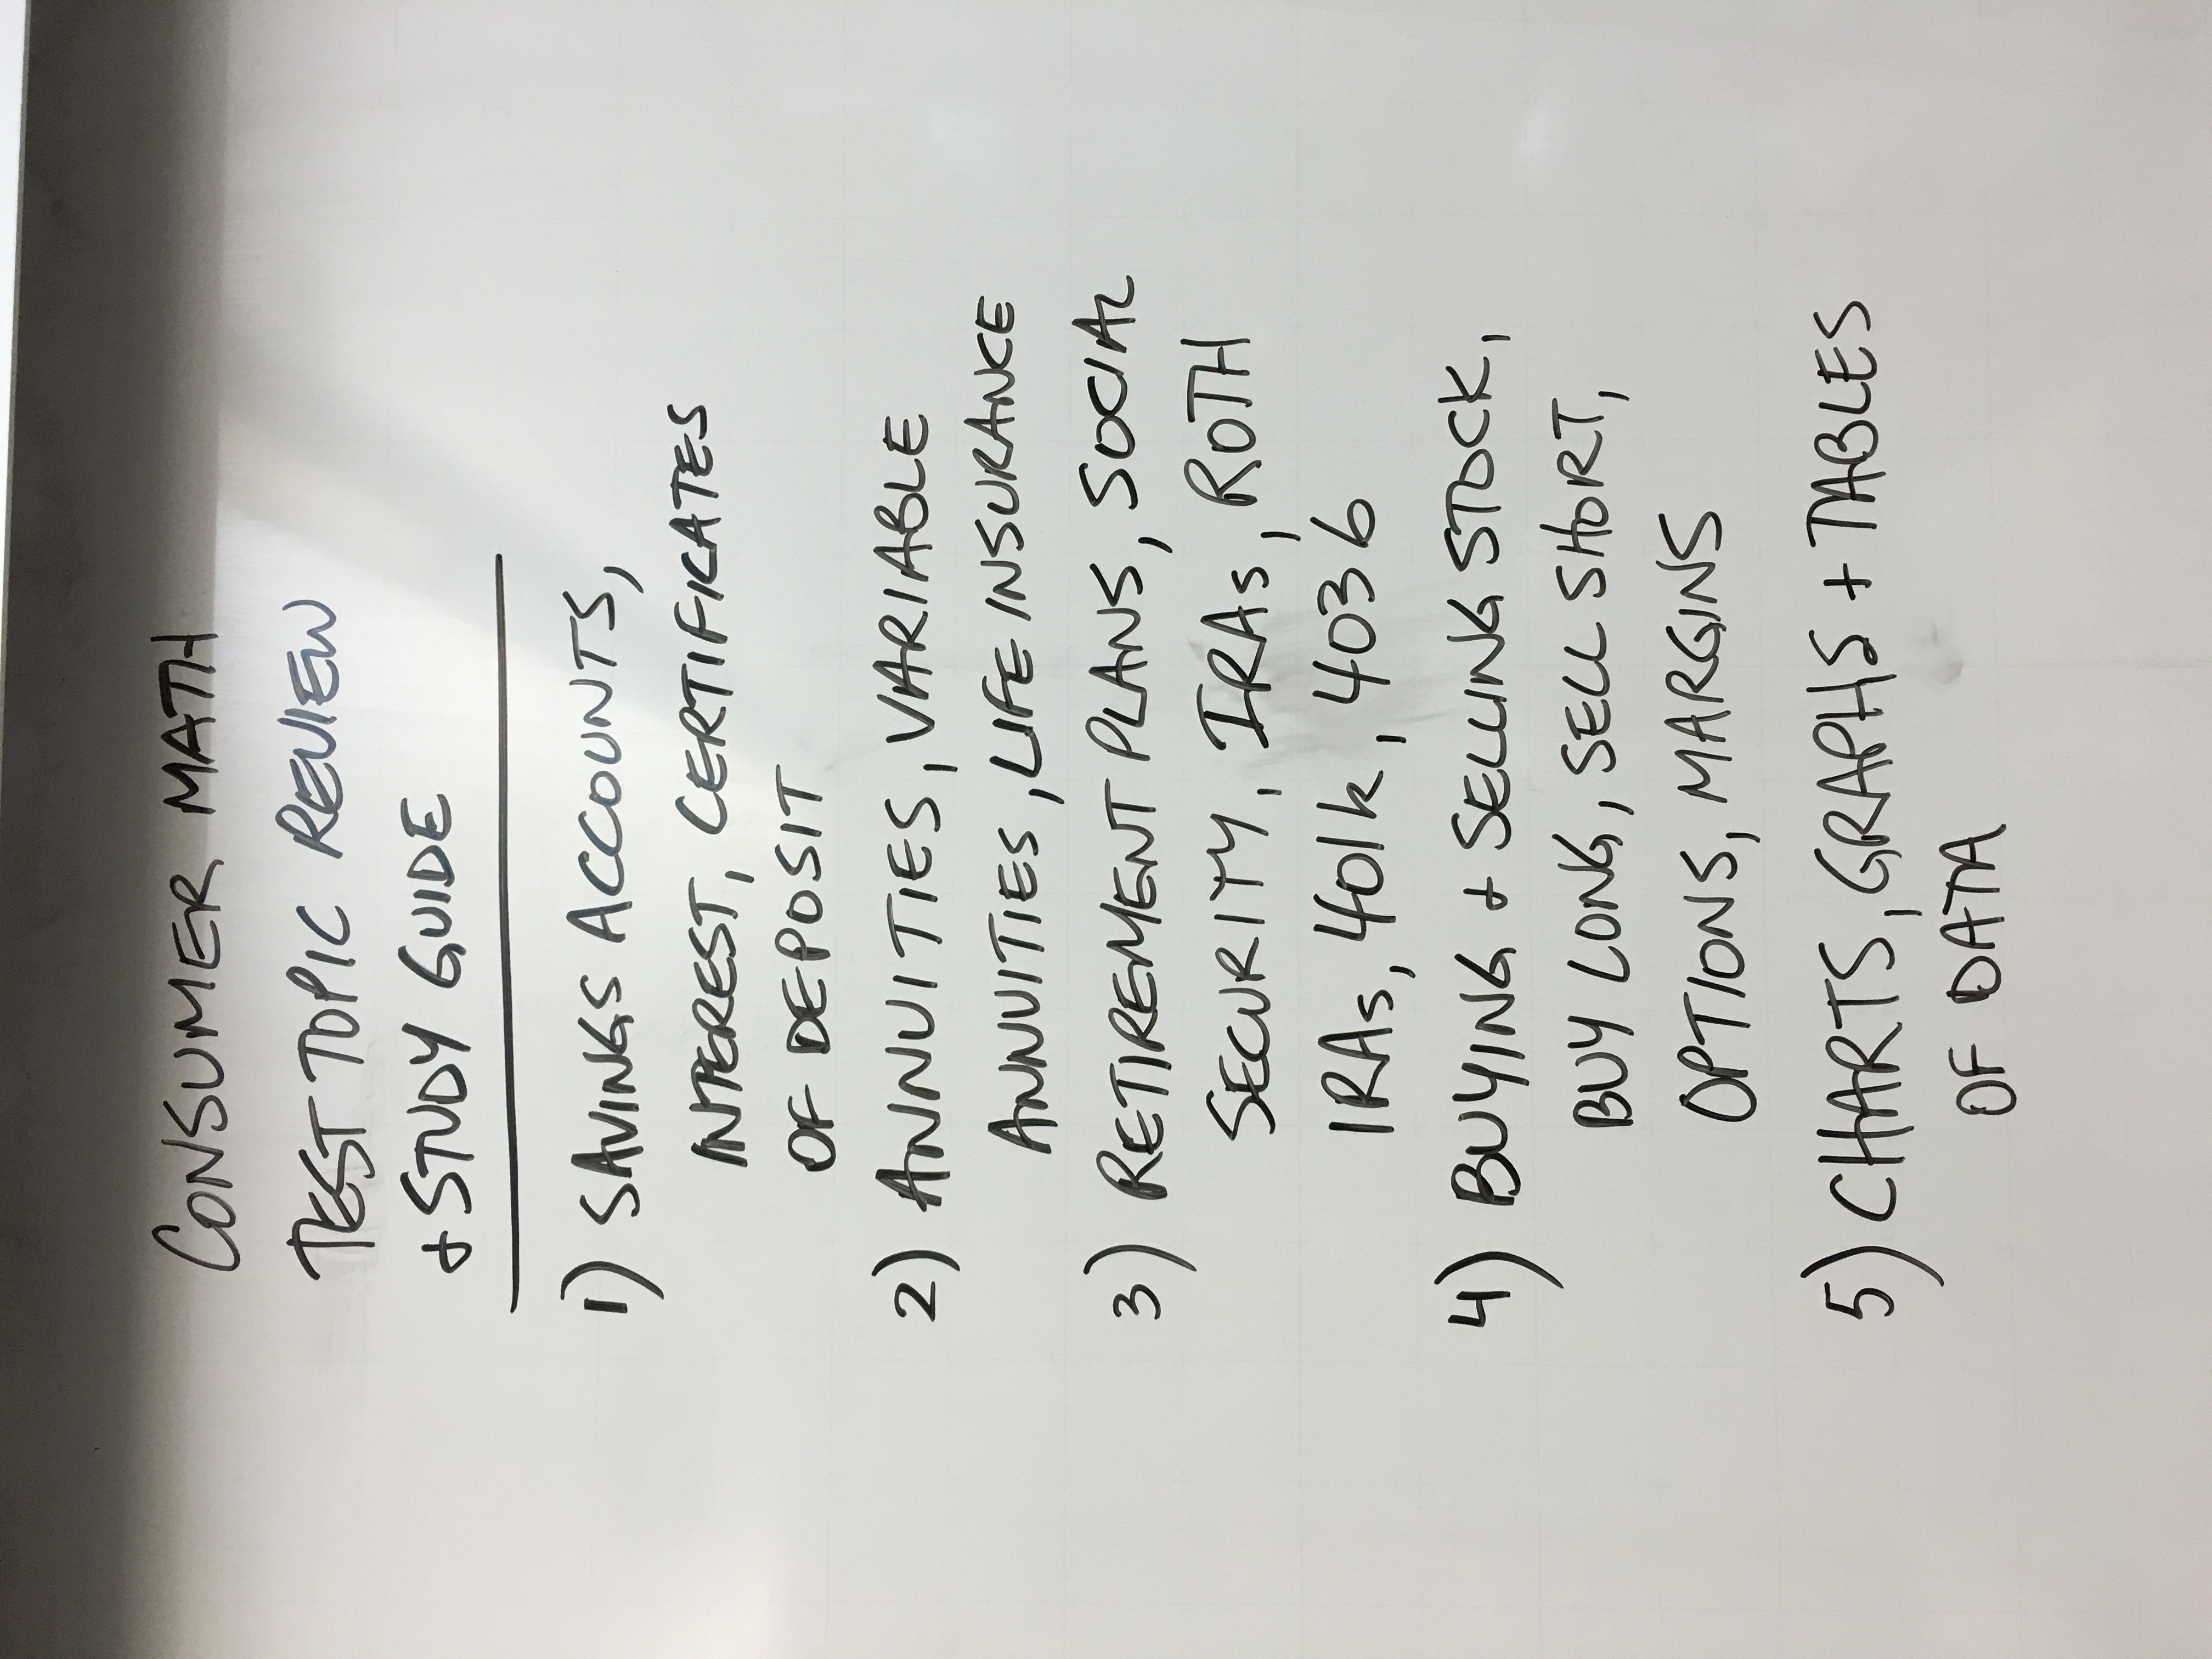 CONSUMER MATH
TEST TOPIC REVIEW
+ STUDY GUIDE
1) SAVINGS ACCOUNTS,
INTEREST, CERTIFICATES
OF DEPOSIT
2) ANNUITIES, VARIABLE
ANNUITIES, LIFE INSURANCE
3) RETIREMENT PLANS, SOCIAL
SECURITY, IRAs, ROTH
IRAs, 401k, 403b
4) BUYING + SELLING STOCK,
BUY LONG, SELL SHORT,
OPTIONS, MARGINS
5) CHARTS, GRAPHS + TABLES
OF DATA